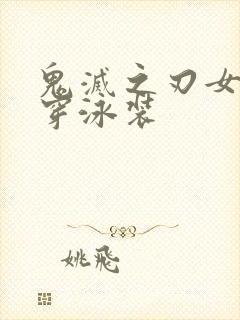 鬼滅之刃女
穿泳装
姚飛